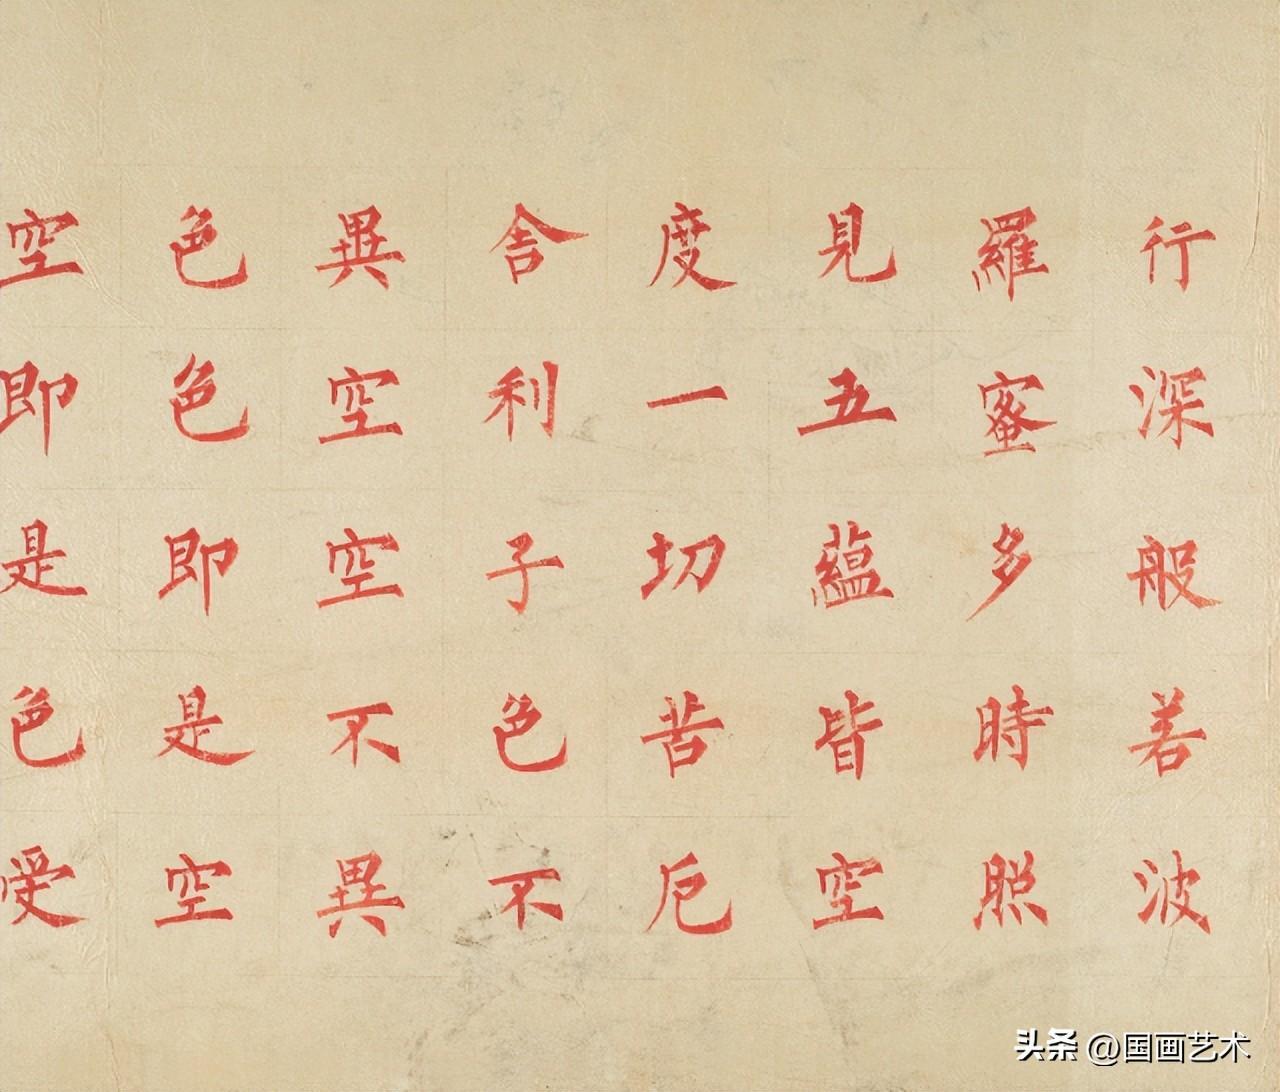 行深般若波
羅蜜多時照
見五蘊皆空
度一切苦厄
舍利子色不
異空空不異
色色即是空
空即是色受
头条 @国画艺术